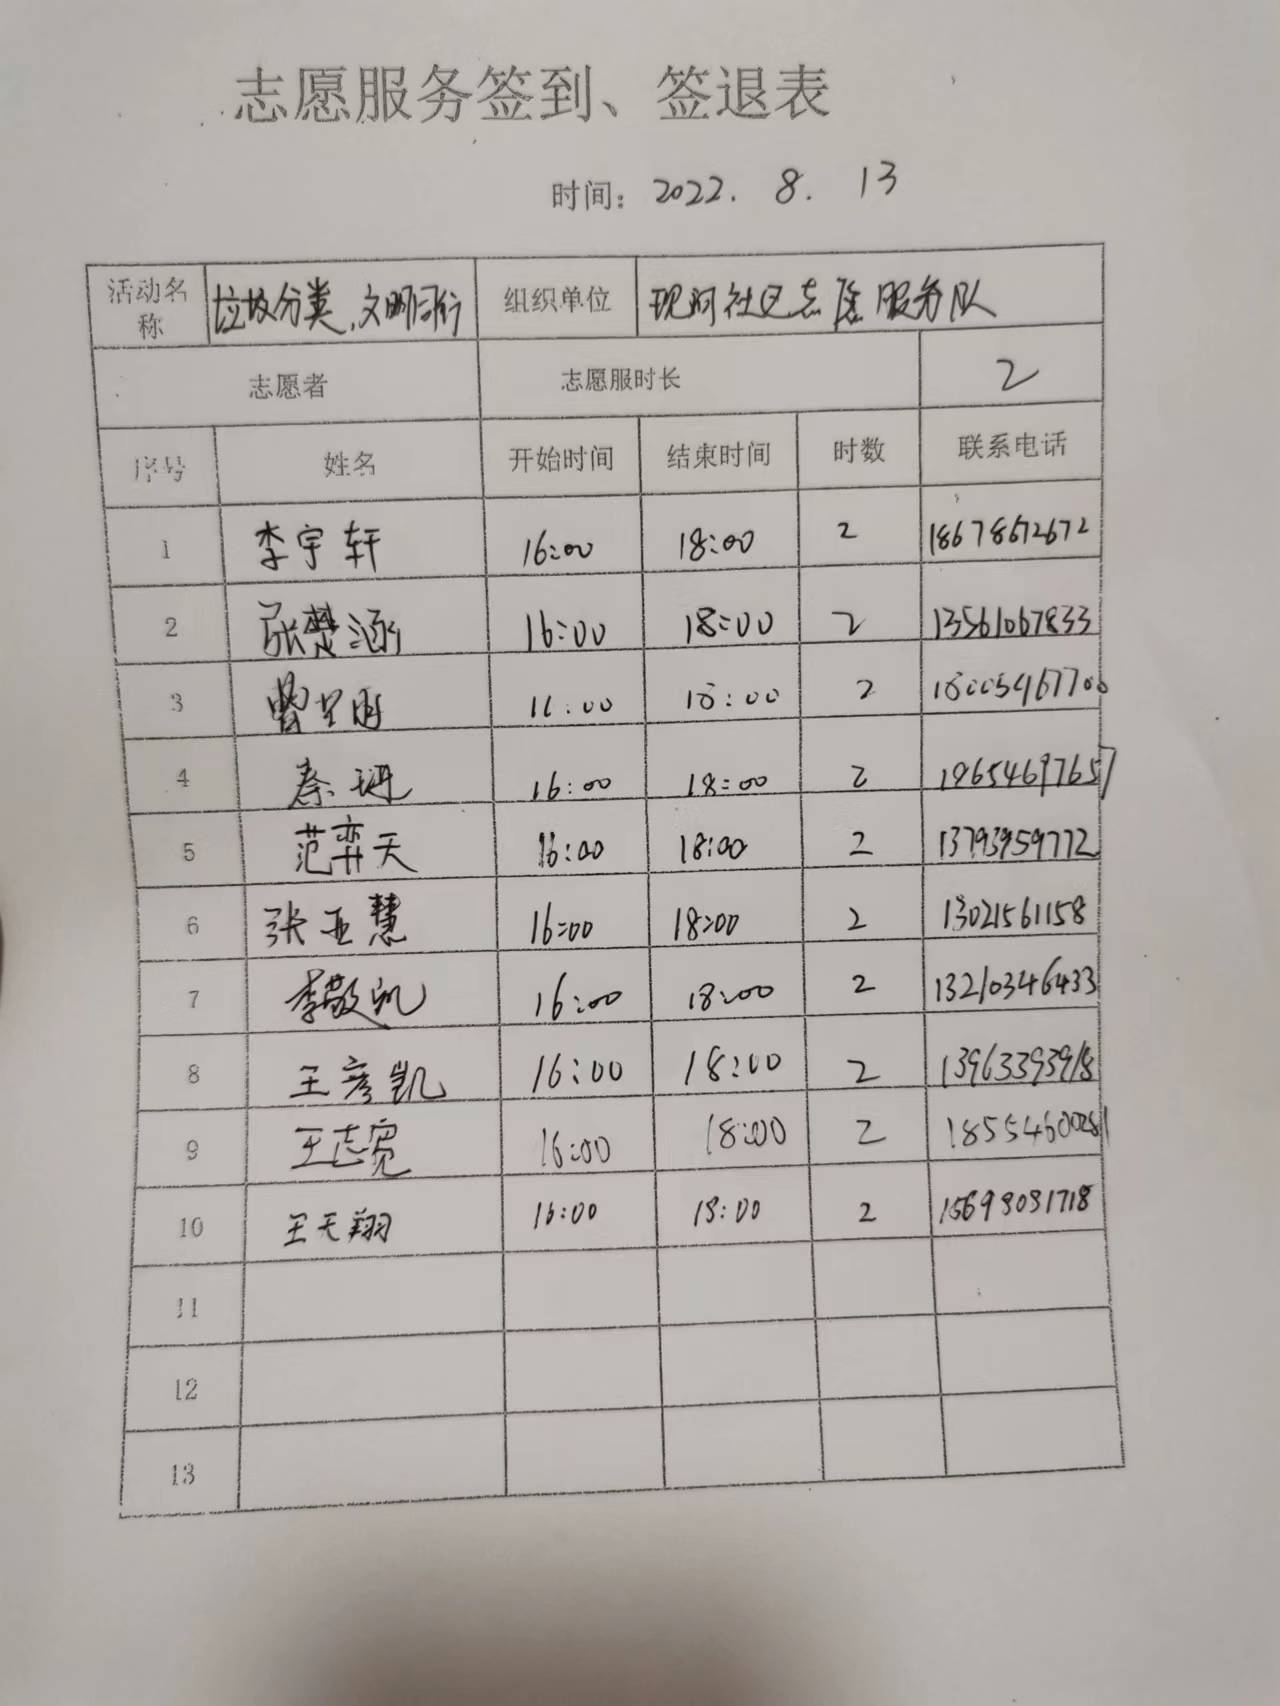 志愿服务签到、签退表
时间：2022. 8. 13
活动名称 垃圾分类,文明同行 组织单位 现河社区志愿服务队
志愿者 志愿服时长 2
序号 姓名 开始时间 结束时间 时数 联系电话
1 李宇轩 16:00 18:00 2 18678672672
2 张楚涵 16:00 18:00 2 13561067833
3 16:00 18:00 2
4 秦 16:00 18:00 2
5 范弈天 16:00 18:00 2 13793959772
6 张亚慧 16:00 18:00 2 13021561158
7 李敬凯 16:00 18:00 2 13210346433
8 王彦凯 16:00 18:00 2 13963393918
9 王志宽 16:00 18:00 2
10 王天翔 16:00 18:00 2 15698081718
11
12
13